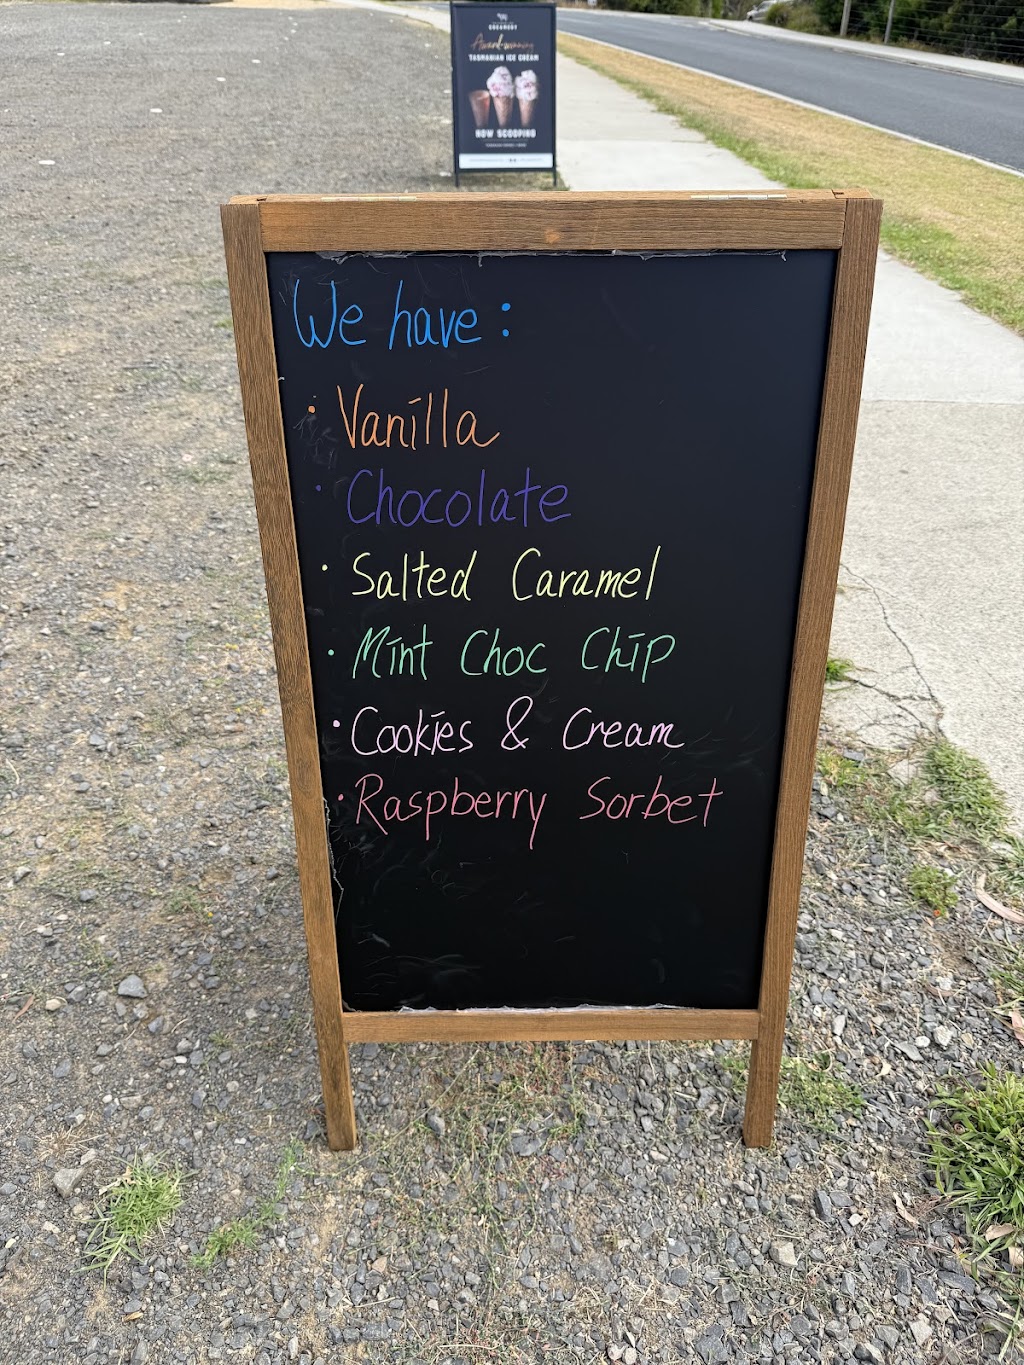 CREAMERY
Award-winning
TASMANIAN ICE CREAM
NOW SCOOPING
We have:
• Vanilla
• Chocolate
• Salted Caramel
• Mint Choc Chip
• Cookies & Cream
• Raspberry Sorbet